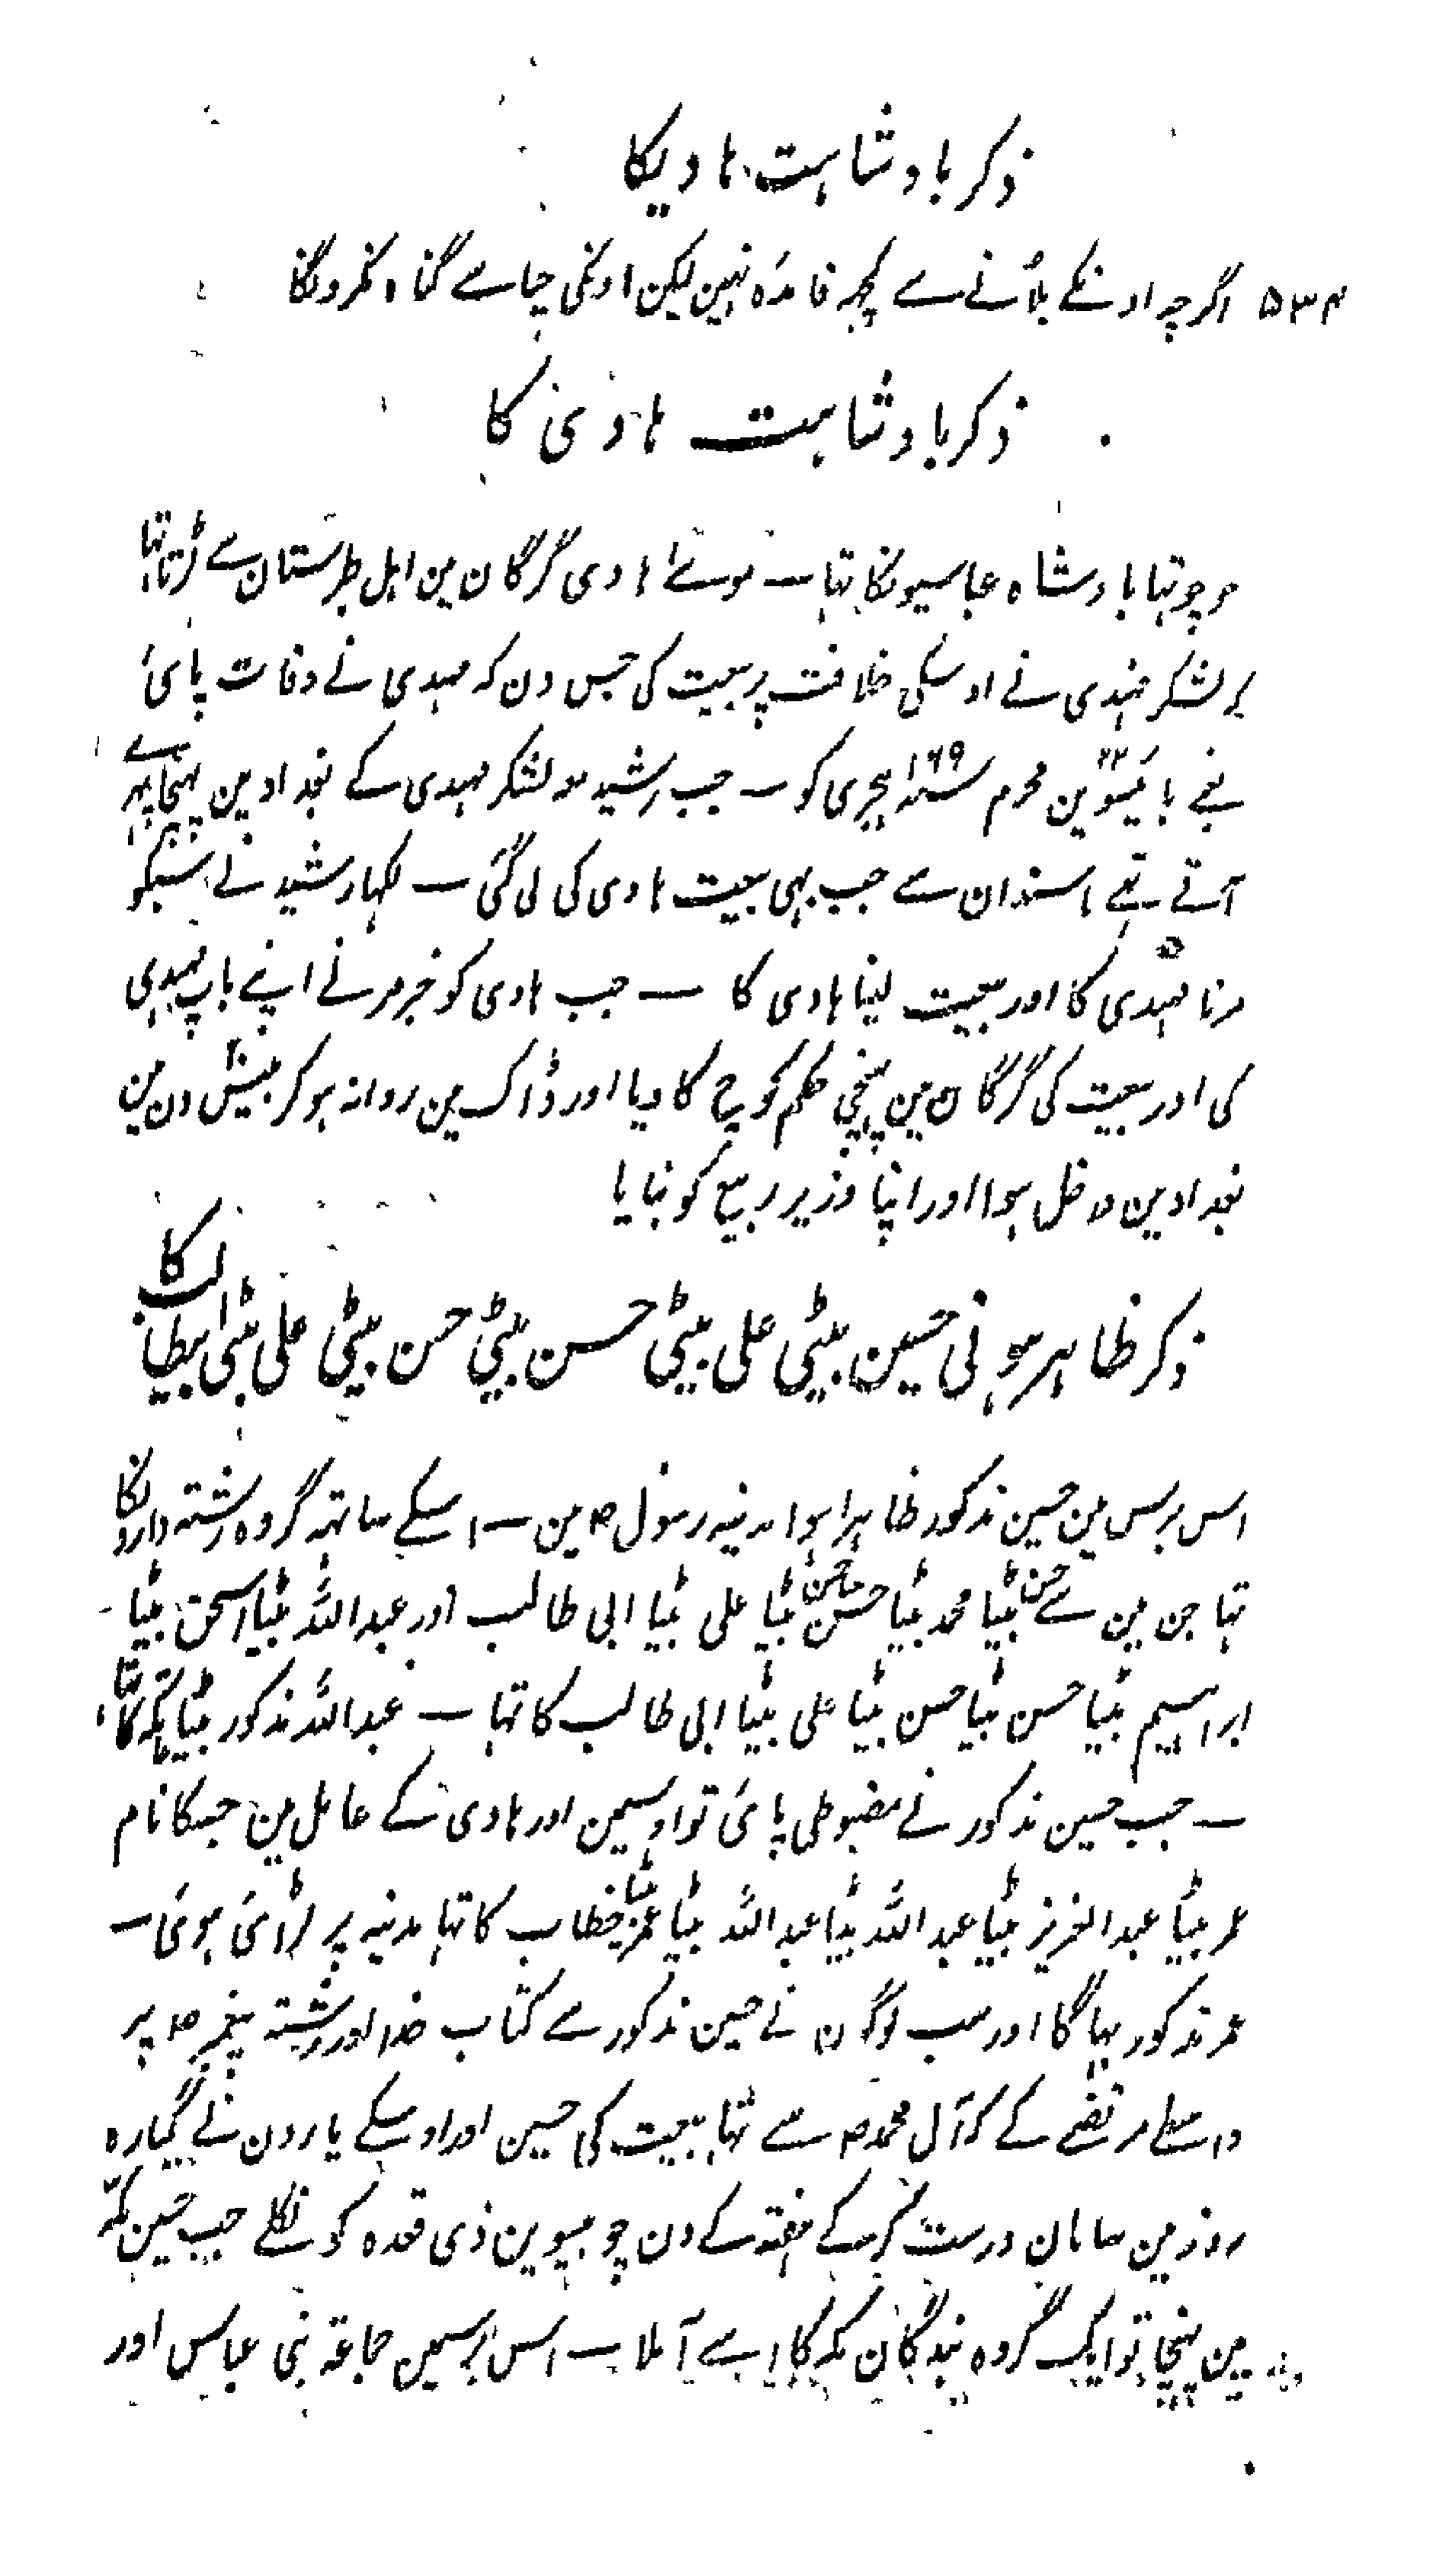 ذکر بادشاہت ہادیکا
۵۳۴ اگرچہ اونکے بلانے سے کچہہ فائدہ نہین لیکن اونکی جیاسے گناہ نکرونگا
ذکر بادشاہت ہادی کا
جو چوتہا بادشاہ عباسیونکا تہا — موسےٰ ہادی گرگان مین اہل طبرستان سے لڑتا تہا
پر لشکر مہدی نے اوسکی خلافت پر بیعت کی جس دن کہ مہدی نے وفات پائی
یعنے بائیسوین ۲۲ محرم سنہ ۱۶۹ ہجری کو — جب رشید مع لشکر مہدی کے بغداد مین پہنچا پہرے
آتے تہے ماسبذان سے جب بہی بیعت ہادی کی لی گئی — لکہا رشید نے سبکو
مرنا مہدی کا اور بیعت لینا ہادی کا — جب ہادی کو خبر مرنے اپنے باپ مہدی
کی اور بیعت کی گرگان مین پہنچی حکم کوچ کا دیا اور ڈاک مین روانہ ہوکر بیس ۲۰ دن مین
بغداد مین داخل ہوا اور اپنا وزیر ربیع کو بنایا
ذکر ظاہر ہونی حسین بیٹی علی بیٹی حسن بیٹی حسن بیٹی علی بیٹی ابیطالب کا
اس برس مین حسین مذکور ظاہر ہوا مدینہ رسول ص مین — اسکے ساتہہ گروہ رشتہ دارونکا
تہا جن مین سے حسن بیٹا محمد بیٹا حسن بیٹا حسن بیٹا علی بیٹا ابی طالب اور عبداللہ بیٹا اسحق بیٹا
ابراہیم بیٹا حسن بیٹا حسن بیٹا علی بیٹا ابی طالب کا تہا — عبداللہ مذکور بیٹا تہا
— جب حسین مذکور نے مضبوطی پائی تو اوسمین اور ہادی کے عامل مین جسکا نام
عمر بیٹا عبدالعزیز بیٹا عبداللہ بیٹا عبداللہ بیٹا عمر بیٹا خطاب کا تہا مدینہ پر لڑائی ہوئی —
عمر مذکور بہاگا اور سب لوگون نے حسین مذکور سے کتاب خدا اور رشتہ پیغمبر ص پر
واسطے مرتضے کے کہ آل محمد ص سے تہا بیعت کی حسین اور اوسکے یارون نے گیارہ
روز مین سامان درست کرکے ہفتہ کے دن چوبیسوین ذی قعدہ کو نکلے جب حسین مکہ
مین پہنچا تو ایک گروہ بندگان مکہ کا اسے آملا — اس برسمین جماعۃ بنی عباس اور